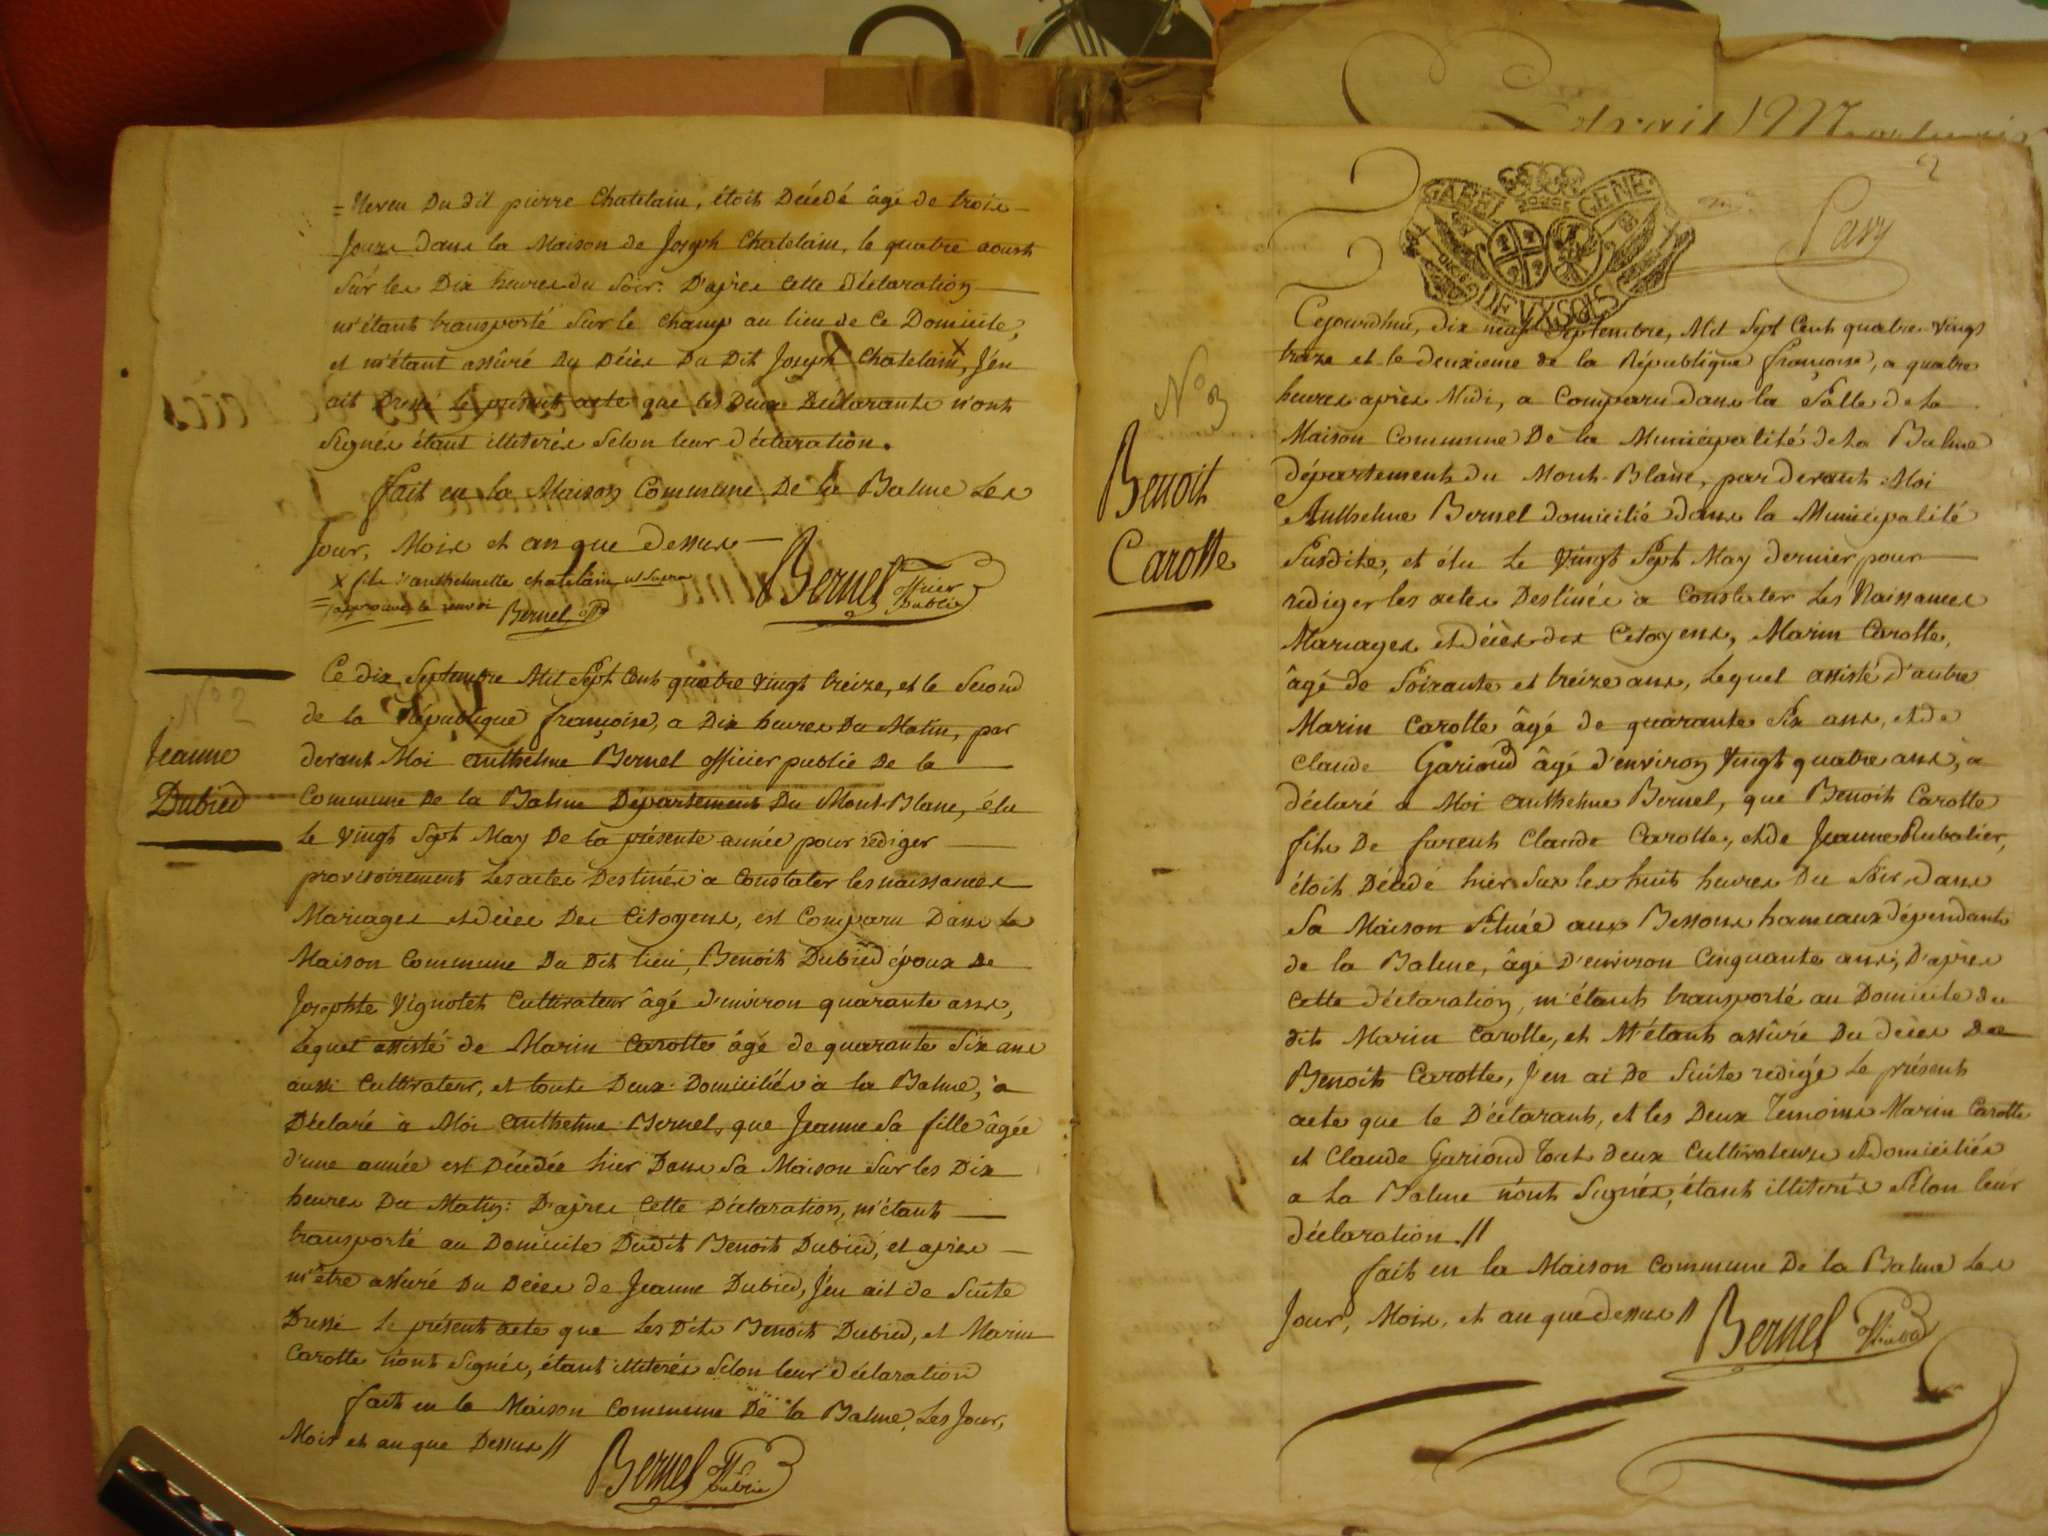 = Neveu Du dit pierre Chatelain, étoit Décédé âgé de trois
Jours dans la Maison de Joseph Chatelain, le quatre aoust
Sur les Dix heures du Soir: D'après Cette déclaration
m'étant transporté Sur le champ au lieu de Ce Domicile,
et m'étant assûré Du Décès Du Dit Joseph Chatelain X, J'en
ait Dressé le présent acte que les Deux Déclarants n'ont
Signés étant illiterés Selon leur déclaration.
fait en la Maison Commune De la Balme Les
Jour, Mois et an que dessus
X fils d'anthelmette chatelain ut Supra
= J'approuve le renvoi Bernel off
Bernel officier Public
Nº 2
Jeanne
Dubied
Ce dix Septembre Mil Sept Cent quatre vingt treize, et le Second
de la République françoise, a Dix heures Du Matin, par
devant Moi anthelme Bernel officier public De la
Commune De la Balme Département Du Mont-Blanc, élu
le vingt Sept May De la présente année pour rédiger
provisoirement Les actes Destinés a Constater les naissances
Mariages et décès Des Citoyens, est Comparu Dans la
Maison Commune Du Dit lieu, Benoit Dubied époux De
Josephte Vignolet Cultivateur âgé d'environ quarante ans,
Lequel assisté de Marin Carotte âgé de quarante Six ans
aussi Cultivateur, et touts Deux Domiciliés à la Balme, a
Déclaré à Moi anthelme Bernel, que Jeanne Sa fille âgée
d'une année est Décédée hier Dans Sa Maison Sur les Dix
heures Du Matin: D'après Cette Déclaration, m'étant
transporté au Domicile Dudit Benoit Dubied, et après
m'être assuré Du Décès de Jeanne Dubied, J'en ait de Suite
Dressé le présent acte que Les Dits Benoit Dubied, et Marin
Carotte n'ont Signés, étant illiterés Selon leur déclaration
fait en la Maison Commune De la Balme Les Jour,
Mois et an que Dessus //
Bernel off Public
Extrait
2
GABEL GENE
DEUX SOLS
Nº 3
Benoit
Carotte
Cejourdhui, dix neuf Septembre, Mil Sept Cent quatre vingt
traize et le deuxieme de la République françoise, a quatre
heures après Midi, a Comparu dans la Salle de la
Maison Commune De la Municipalité de La Balme
département du Mont-Blanc, par devant Moi
Anthelme Bernel domicilié dans la Municipalité
Susdite, et élu Le Vingt Sept May dernier pour
rédiger les actes Destinés a Constater Les Naissances
Mariages et décès des Citoyens, Marin Carotte,
âgé de Soixante et treize ans, Lequel assisté d'autre
Marin Carotte âgé de quarante Six ans, et de
Claude Gariond âgé d'environ Vingt quatre ans, a
déclaré a Moi anthelme Bernel, que Benoit Carotte
fils De furent Claude Carotte, et de Jeanne Rubatier,
étoit Décédé hier Sur les huit heures Du Soir dans
Sa Maison Située aux Bessons hameaux dépendant
de la Balme, âgé D'environ Cinquante ans, D'après
Cette déclaration, m'étant transporté au Domicile du
dit Marin Carotte, et M'étant assûré Du décès De
Benoit Carotte, J'en ai De Suite redigé Le présent
acte que le Déclarant, et les Deux Temoins Marin Carotte
et Claude Gariond Tout deux Cultivateurs et domiciliés
a la Balme n'ont Signés, étant illiterés Selon leur
déclaration //
fait en la Maison Commune De la Balme Les
Jour, Mois, et an que dessus //
Bernel